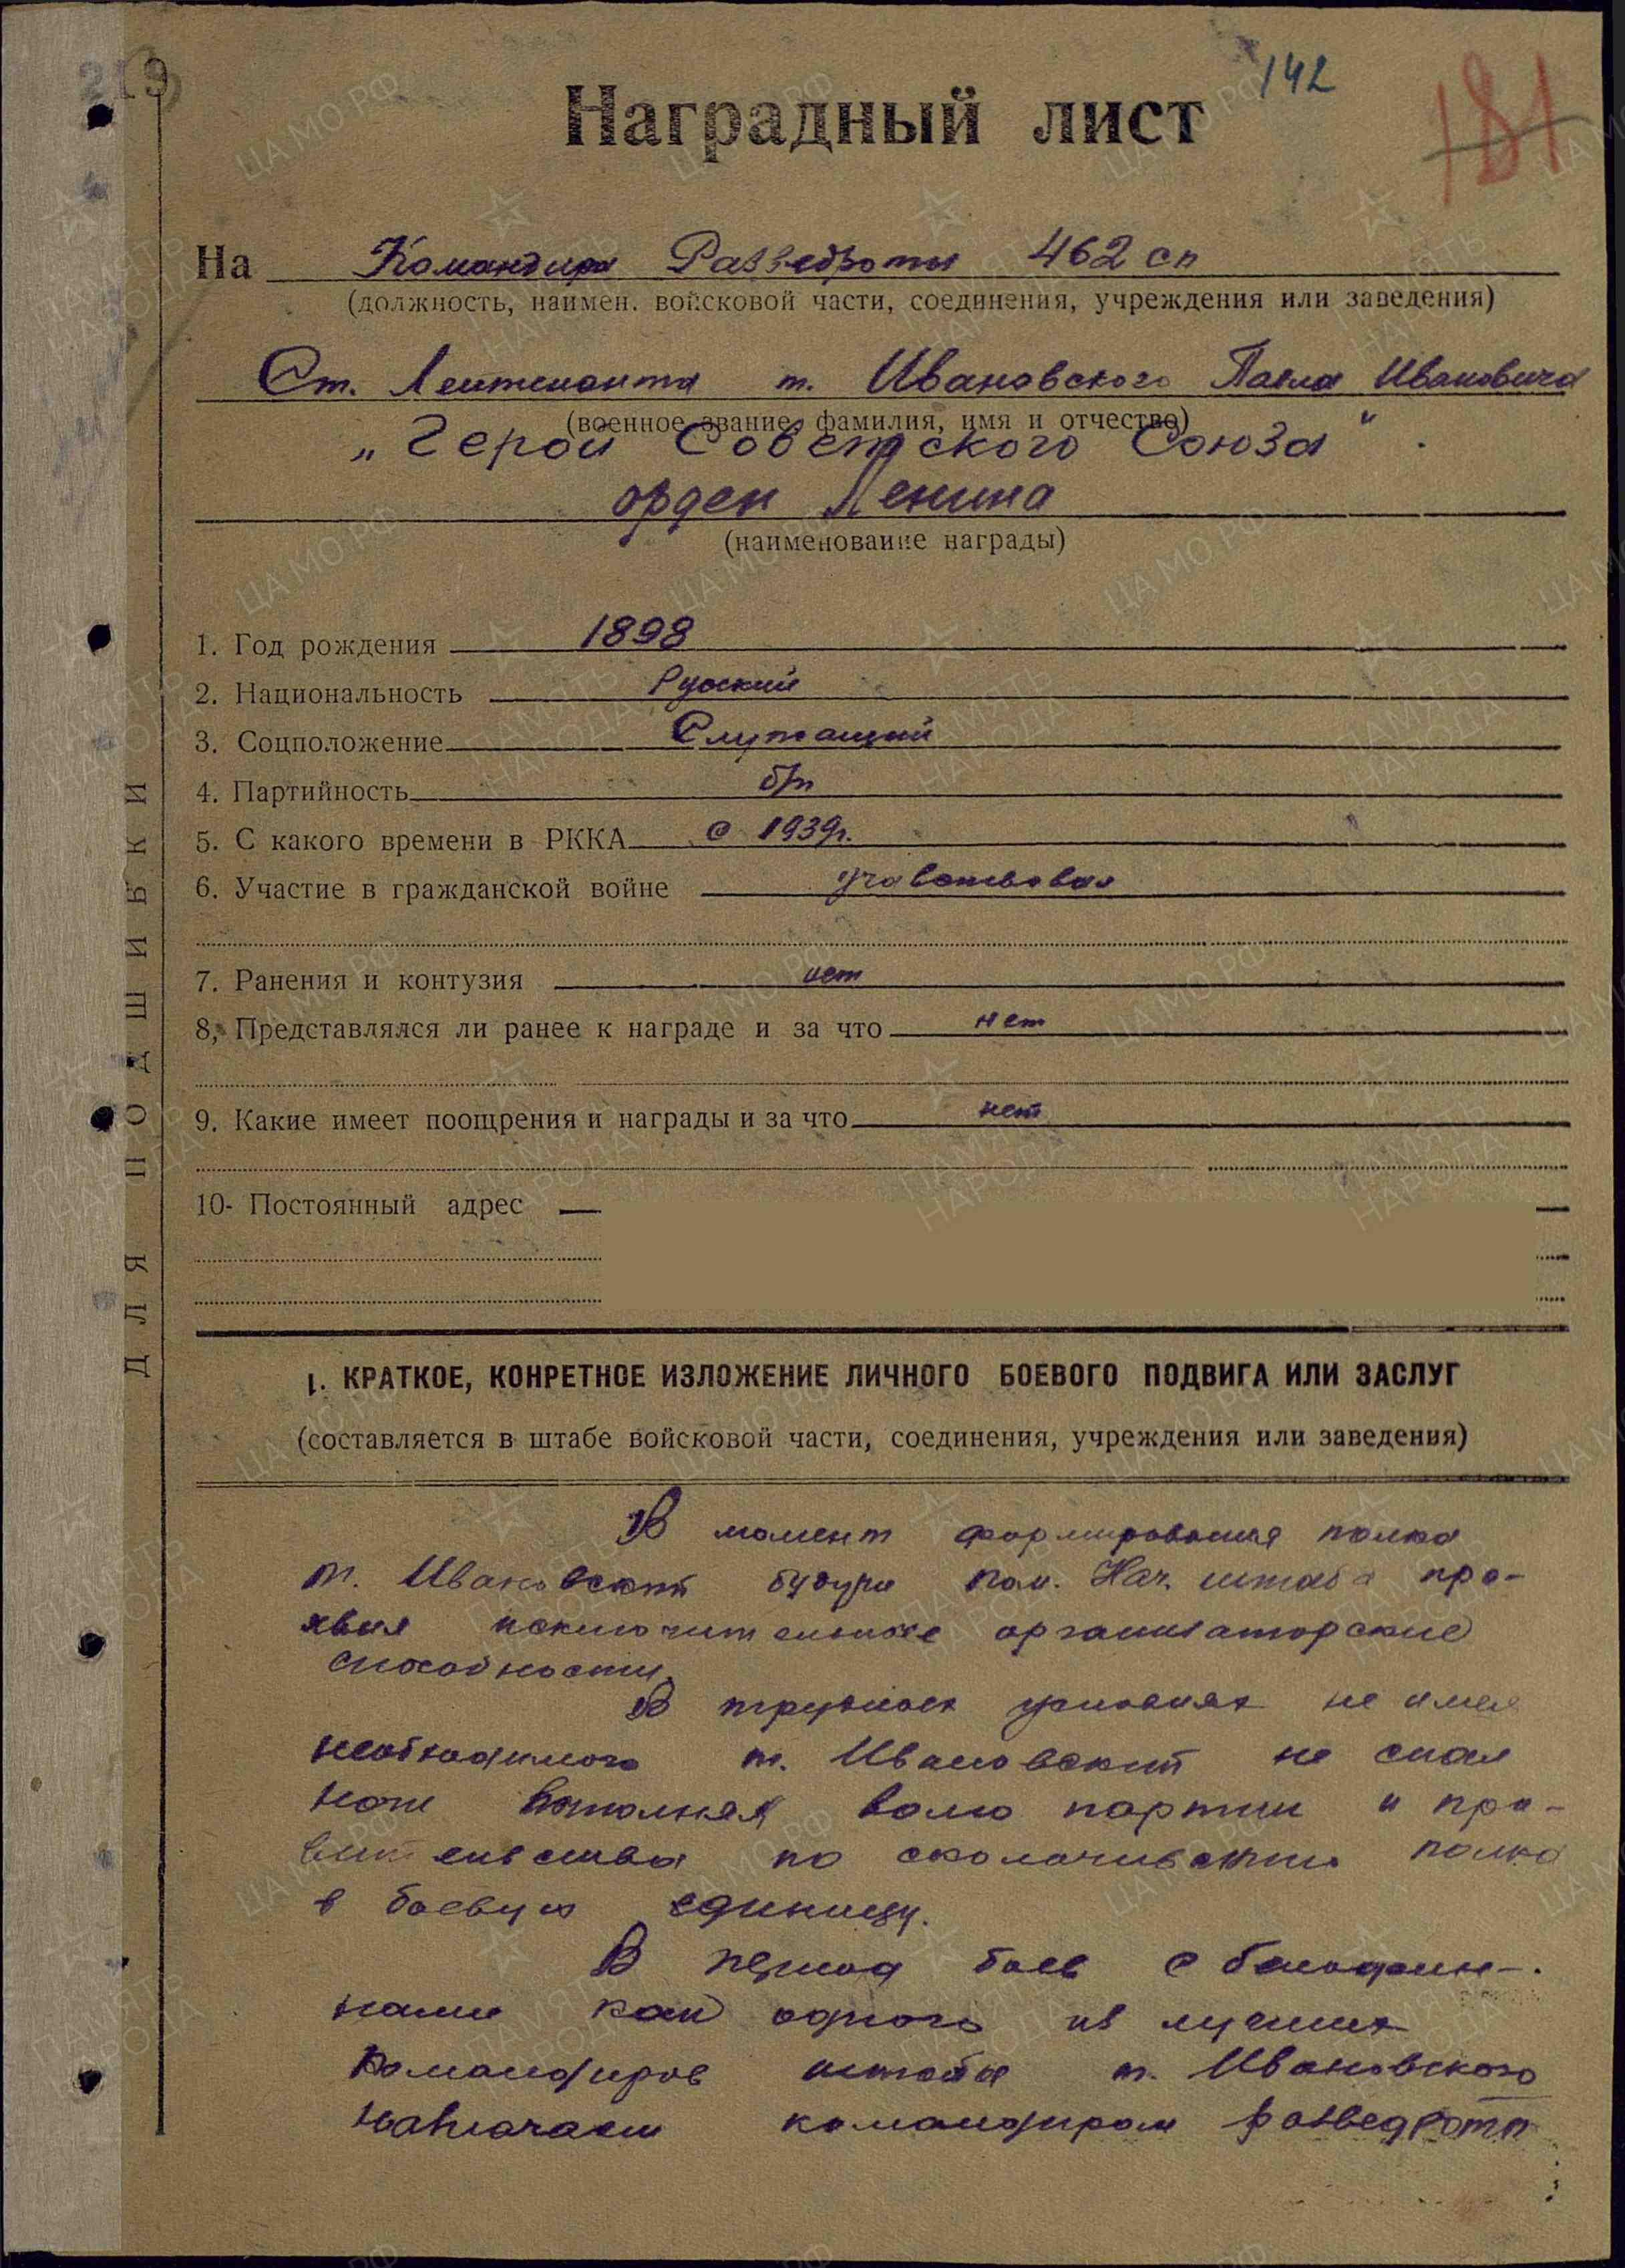 142
181
Наградный лист
На Командира Разведроты 462 сп
(должность, наимен. войсковой части, соединения, учреждения или заведения)
Ст. Лейтенанта т. Ивановского Павла Ивановича
(военное звание, фамилия, имя и отчество)
„Герой Советского Союза".
орден Ленина
(наименование награды)
1. Год рождения 1898
2. Национальность Русский
3. Соцположение Служащий
4. Партийность б/п
5. С какого времени в РККА с 1939г.
6. Участие в гражданской войне учавствовал
7. Ранения и контузия нет
8, Представлялся ли ранее к награде и за что нет
9. Какие имеет поощрения и награды и за что нет
10- Постоянный адрес
ДЛЯ ПОДШИВКИ
I. КРАТКОЕ, КОНРЕТНОЕ ИЗЛОЖЕНИЕ ЛИЧНОГО БОЕВОГО ПОДВИГА ИЛИ ЗАСЛУГ
(составляется в штабе войсковой части, соединения, учреждения или заведения)
В момент формирования полка
т. Ивановский будучи Пом. Нач. штаба про-
явил исключительные организаторские
способности.
В трудных условиях не имея
необходимого т. Ивановский не спал
ночи выполняя волю партии и пра-
вительства по сколачиванию полка
в боевую единицу.
В период боев с белофин-
нами как одного из лучших
командиров штаба т. Ивановского
назначают командиром разведроты
ЦА МО РФ
ПАМЯТЬ НАРОДА